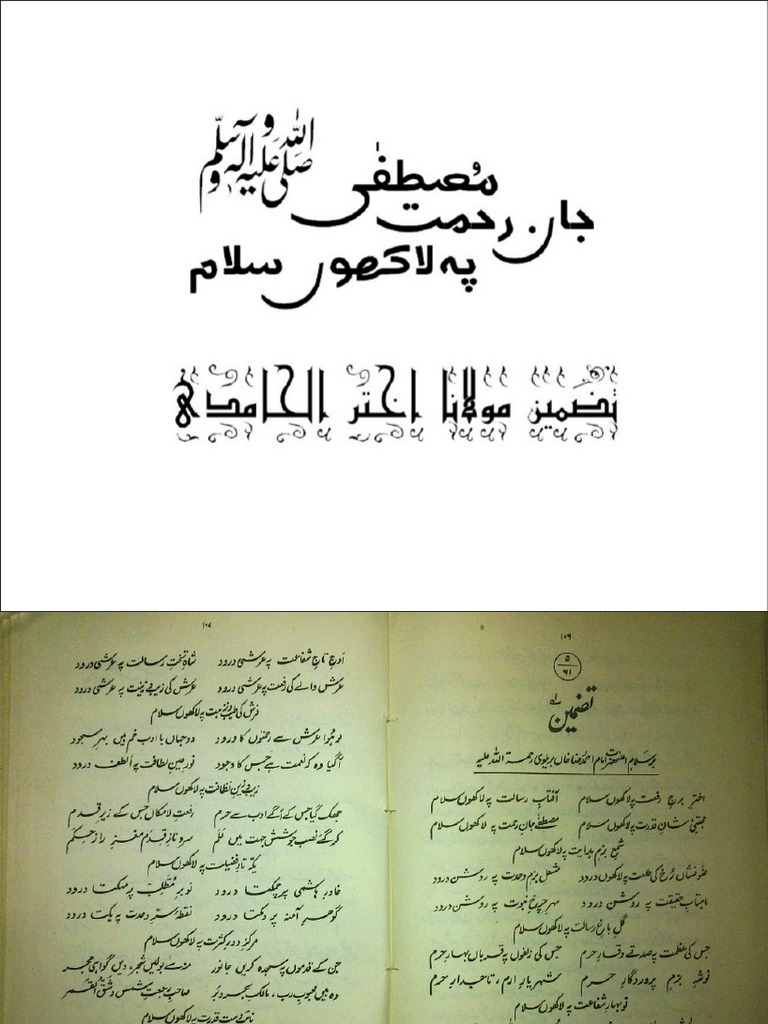 مصطفیٰ صلی اللہ علیہ وآلہ وسلم
جان رحمت
پہ لاکھوں سلام
تضمین مولانا اختر الحامدی
۱۰۶
۵
۶۱
تضمین
بر سلام اعلیٰحضرت امام احمد رضا خاں بریلوی رحمۃ اللہ علیہ
اختر برج رفعت پہ لاکھوں سلام آفتاب رسالت پہ لاکھوں سلام
مجتبیٰ شان قدرت پہ لاکھوں سلام مصطفےٰ جان رحمت پہ لاکھوں سلام
شمع بزم ہدایت پہ لاکھوں سلام
ضوفشاں رخ کی طلعت پہ لاکھوں درود مشعل بزم وحدت پہ روشن درود
ماہتاب حقیقت پہ روشن درود مہر چرخ نبوت پہ روشن درود
گل باغ رسالت پہ لاکھوں سلام
جس کی عظمت پہ صدقے وقار حرم جس کی زلفوں پہ قرباں بہار حرم
نوشہ بزم پروردگار حرم شہر یار ارم، تاجدار حرم
نوبہار شفاعت پہ لاکھوں سلام
۱۰۷
اوج تاج شفاعت پہ عرشی درود شاہ تخت رسالت پہ عرشی درود
عرش والے کی رفعت پہ عرشی درود عرش کی زیب و زینت پہ عرشی درود
فرش کی طیب و نزہت پہ لاکھوں سلام
وہ ہوا عرش سے رحمتوں کا ورود دوجہاں با ادب خم ہیں بہر سجود
آگیا وہ کہ نعمت ہے جس کا وجود نور عین لطافت پہ الطف درود
زیب و زین نظافت پہ لاکھوں سلام
جھک گیا جس کے آگے ادب سے حرم رفعت لامکاں جس کے زیر قدم
کر گئے نصب جو شش جہت میں علم سرو ناز قدم مغز راز حکم
یکہ تاز فضیلت پہ لاکھوں سلام
خاور ہاشمی پر چمکتا درود نوبر مطلب پر مہکتا درود
گوہر آمنہ پر دمکتا درود نقطۂ سر وحدت پہ یکتا درود
مرکز دور کثرت پہ لاکھوں سلام
جن کے قدموں پر سجدہ کریں جانور منہ سے بولیں شجر، دیں گواہی حجر
وہ ہیں محبوب رب، مالک بحر و بر صاحب رجعت شمس و شق القمر
نائب دست قدرت پہ لاکھوں سلام